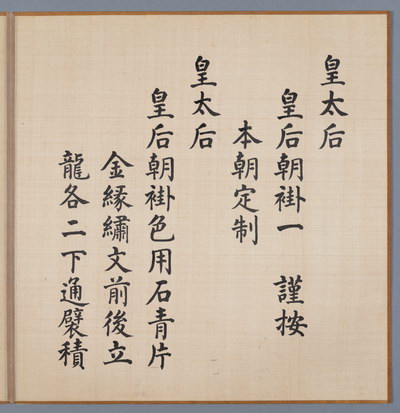 皇太后
皇后朝褂一　謹按
本朝定制
皇太后
皇后朝褂色用石青片
金緣繡文前後立
龍各二下通襞積